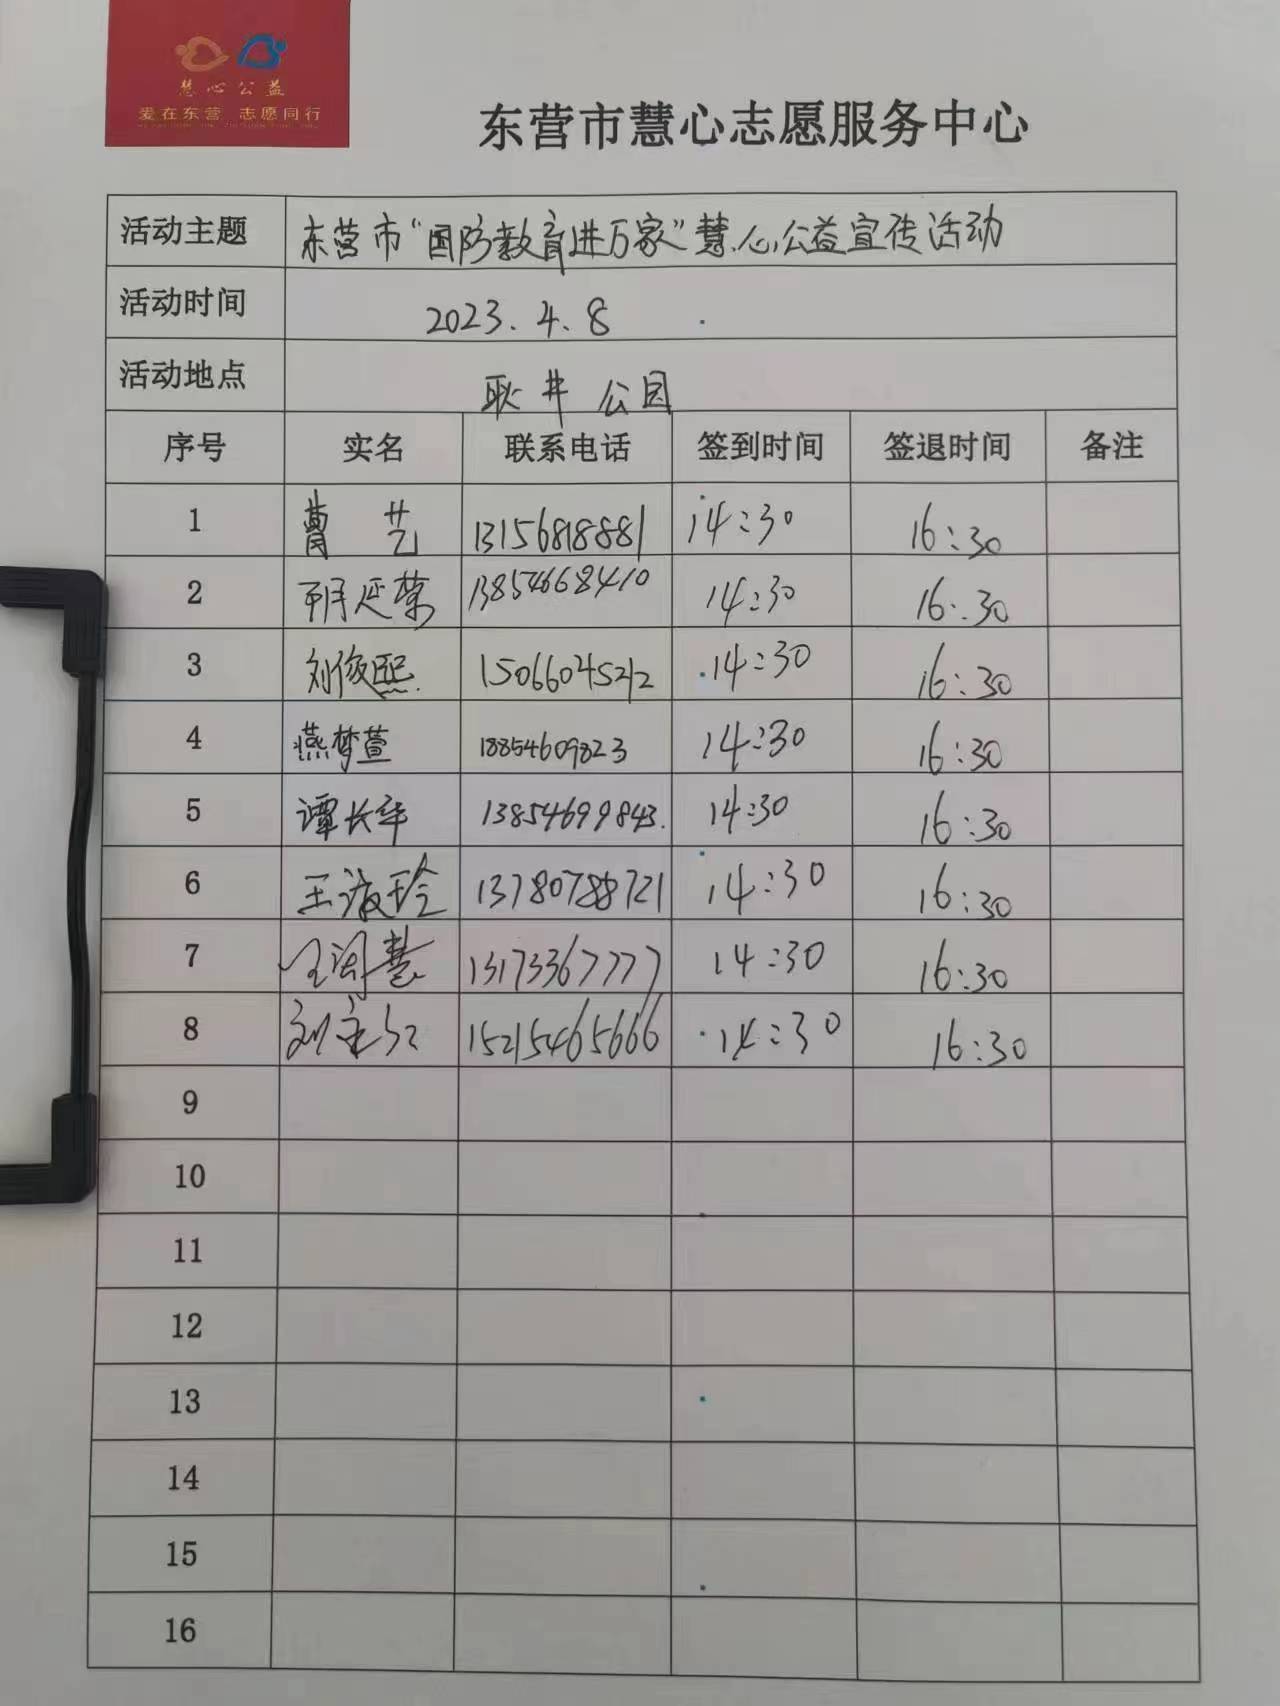 慧心公益
爱在东营 志愿同行
东营市慧心志愿服务中心
活动主题 东营市“国防教育进万家”慧心公益宣传活动
活动时间 2023.4.8
活动地点 耿井公园
序号 实名 联系电话 签到时间 签退时间 备注
1 曹艺 13156818881 14:30 16:30
2 13854668410 14:30 16:30
3 刘俊熙 15066045212 14:30 16:30
4 燕梦萱 18854609823 14:30 16:30
5 谭长华 13854699843. 14:30 16:30
6 王淑玲 13780788721 14:30 16:30
7 13173367777 14:30 16:30
8 15215465666 14:30 16:30
9
10
11
12
13
14
15
16